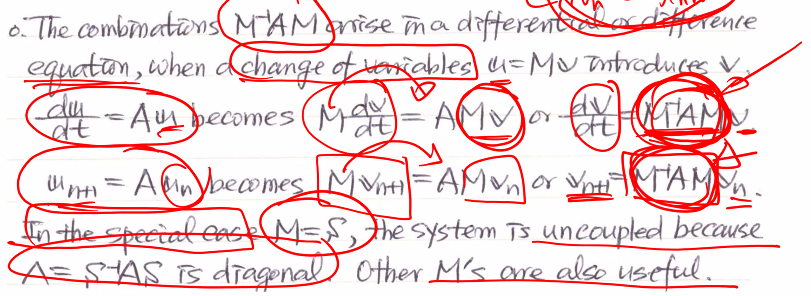 o. The combinations M⁻¹AM arise in a differential or difference
equation, when a change of variables u=Mv introduces v.
du/dt = Au becomes M dv/dt = AMv or dv/dt = M⁻¹AM v
uₙ₊₁ = Auₙ becomes Mvₙ₊₁ = AMvₙ or vₙ₊₁ = M⁻¹AM vₙ.
In the special case M=S, the system is uncoupled because
Λ = S⁻¹AS is diagonal. Other M's are also useful.